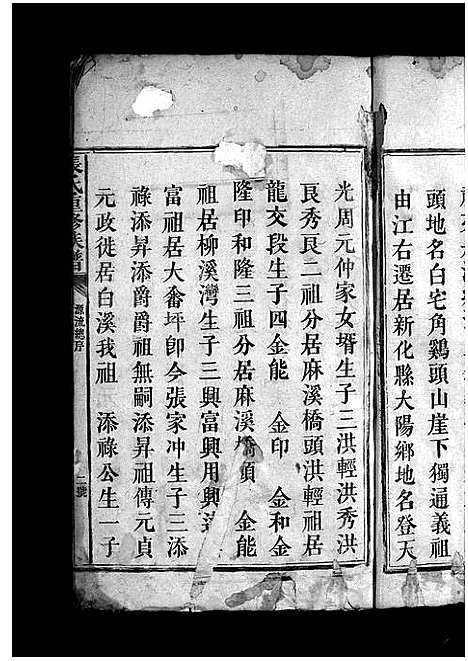 頭地名白宅角鷄頭山崖下獨通義祖
由江右遷居新化縣大陽鄉地名登天
光周元仲家女壻生子三洪輕洪秀洪
艮秀艮二祖分居麻溪橋頭洪輕祖居
龍交段生子四金能 金印 金和金
隆印和隆三祖分居麻溪橋頭 金能
祖居柳溪灣生子三興富興用興
富祖居大畬坪卽今張家冲生子三添
祿添昇添爵爵祖無嗣添昇祖傳元貞
元政徙居白溪我祖 添祿公生一子
張氏重修族譜
源流總序
二號